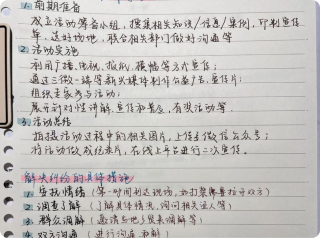 1. 前期准备
成立活动筹备小组，搜集相关知识/信息/案例，印制宣传
单，选好场地，联合相关部门做好沟通等
2. 活动实施
利用广播、电视、报纸、横幅等方式宣传；
通过三微一端等新兴媒体制作公益广告、宣传片；
组织专家参与活动；
展开针对性讲解、宣传和普查，有奖活动等
3. 活动总结
拍摄活动过程中的相关图片，上传至微信公众号；
将活动做成纪录片，在线上平台进行二次宣传。
解决纠纷的具体措施
1. 安抚情绪（第一时间到达现场，如打架需要拉开双方）
2. 调查了解（了解具体情况，询问相关证人等）
3. 群众调解（邀请与他
5. 双方沟通（进行沟通